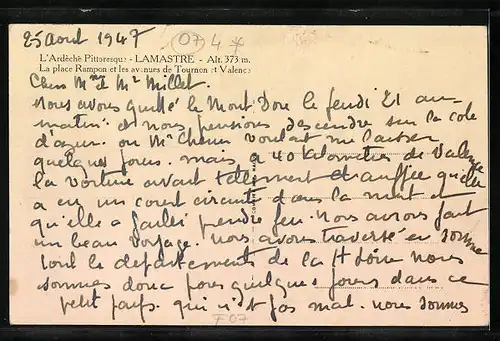 25 Aout 1947
07 4 *
L'Ardèche Pittoresque - LAMASTRE - Alt. 373 m.
La place Rampon et les avenues de Tournon et Valence
Chers Mme et Mr Millet.
nous avons quitté le Mont-Dore le jeudi 21 au
matin. et nous pensions descendre sur la cote
d'azur. ou Mr voulait me laisser
quelques jours. mais a 40 kilometres de Valence
la voiture avait tellement chauffée qu'elle
a eu un court circuit dans la nuit et
qu'elle a failli prendre feu. nous avions fait
un beau voyage. nous avons traversé en somme
tout le departements de la Hte Loire nous
sommes donc pour quelques jours dans ce
petit pays. qui n'est pas mal. nous sommes
F07